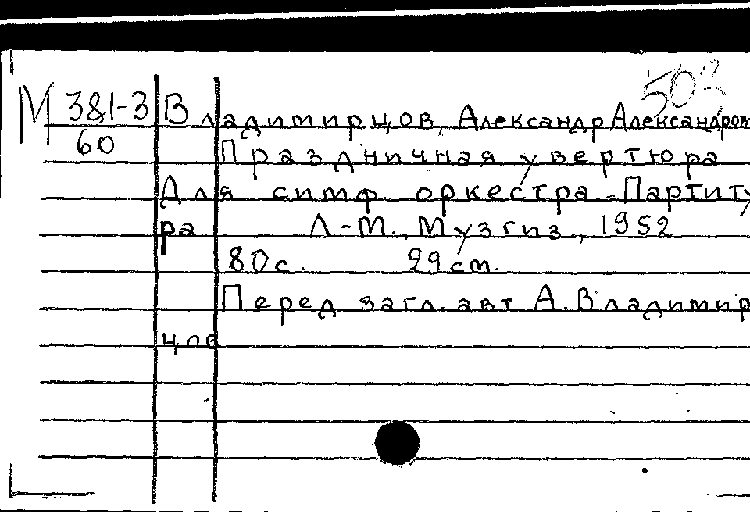 М 381-3 Владимирцов, Александр Александров
60 Праздничная увертюра
Для симф оркестра. Партиту
ра Л-М., Музгиз, 1952
80с. 29cm.
Перед загл. авт А. Владимир
цов